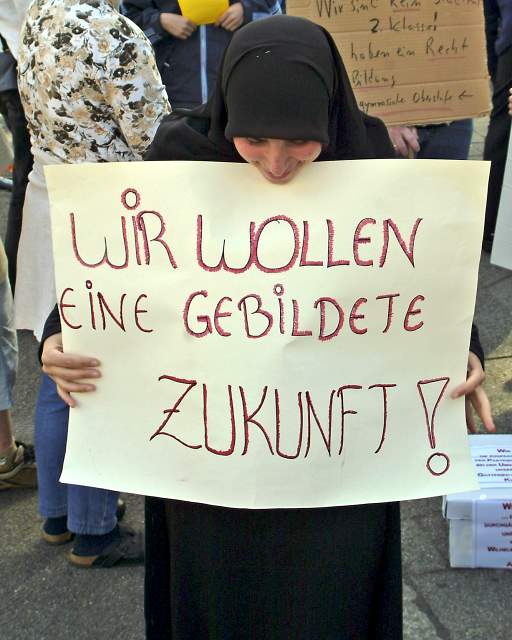 Wir sind kein
2. Klasse!
haben ein Recht
Bildung
gymnasiale Oberstufe ←
WIR WOLLEN
EINE GEBILDETE
ZUKUNFT!